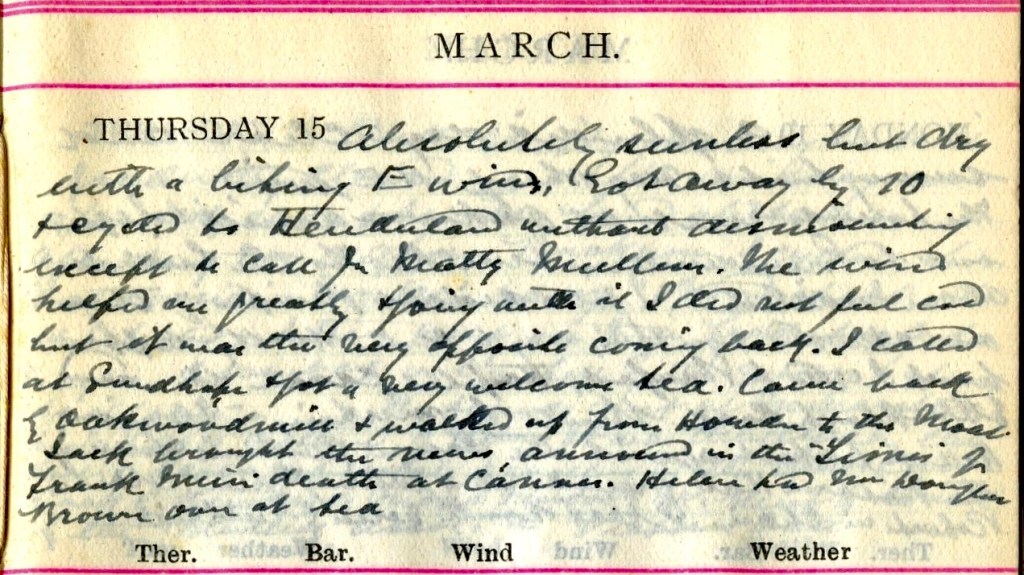 MARCH.
THURSDAY 15 Absolutely sunless but dry
with a biting E wind, Got away by 10
& cycled to Henderland without dismounting
except to call for Matty Mullen. The wind
helped me greatly & going with it I did not feel cold
but it was the very opposite coming back. I called
at Sundhope & got a very welcome tea. Came back
by Oakwoodmill & walked up from Howden to the Moat
Jack brought the news, announced in the "Times" of
Frank death at Cannes. Helen had Mrs Douglas
Brown over at tea
Ther. Bar. Wind Weather